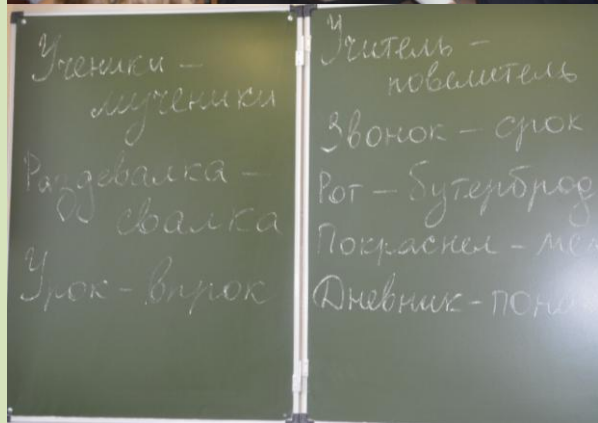 Ученики –
мученики
Раздевалка –
свалка
Урок – впрок
Учитель –
повелитель
Звонок – срок
Рот – бутерброд
Покраснел –
Дневник –